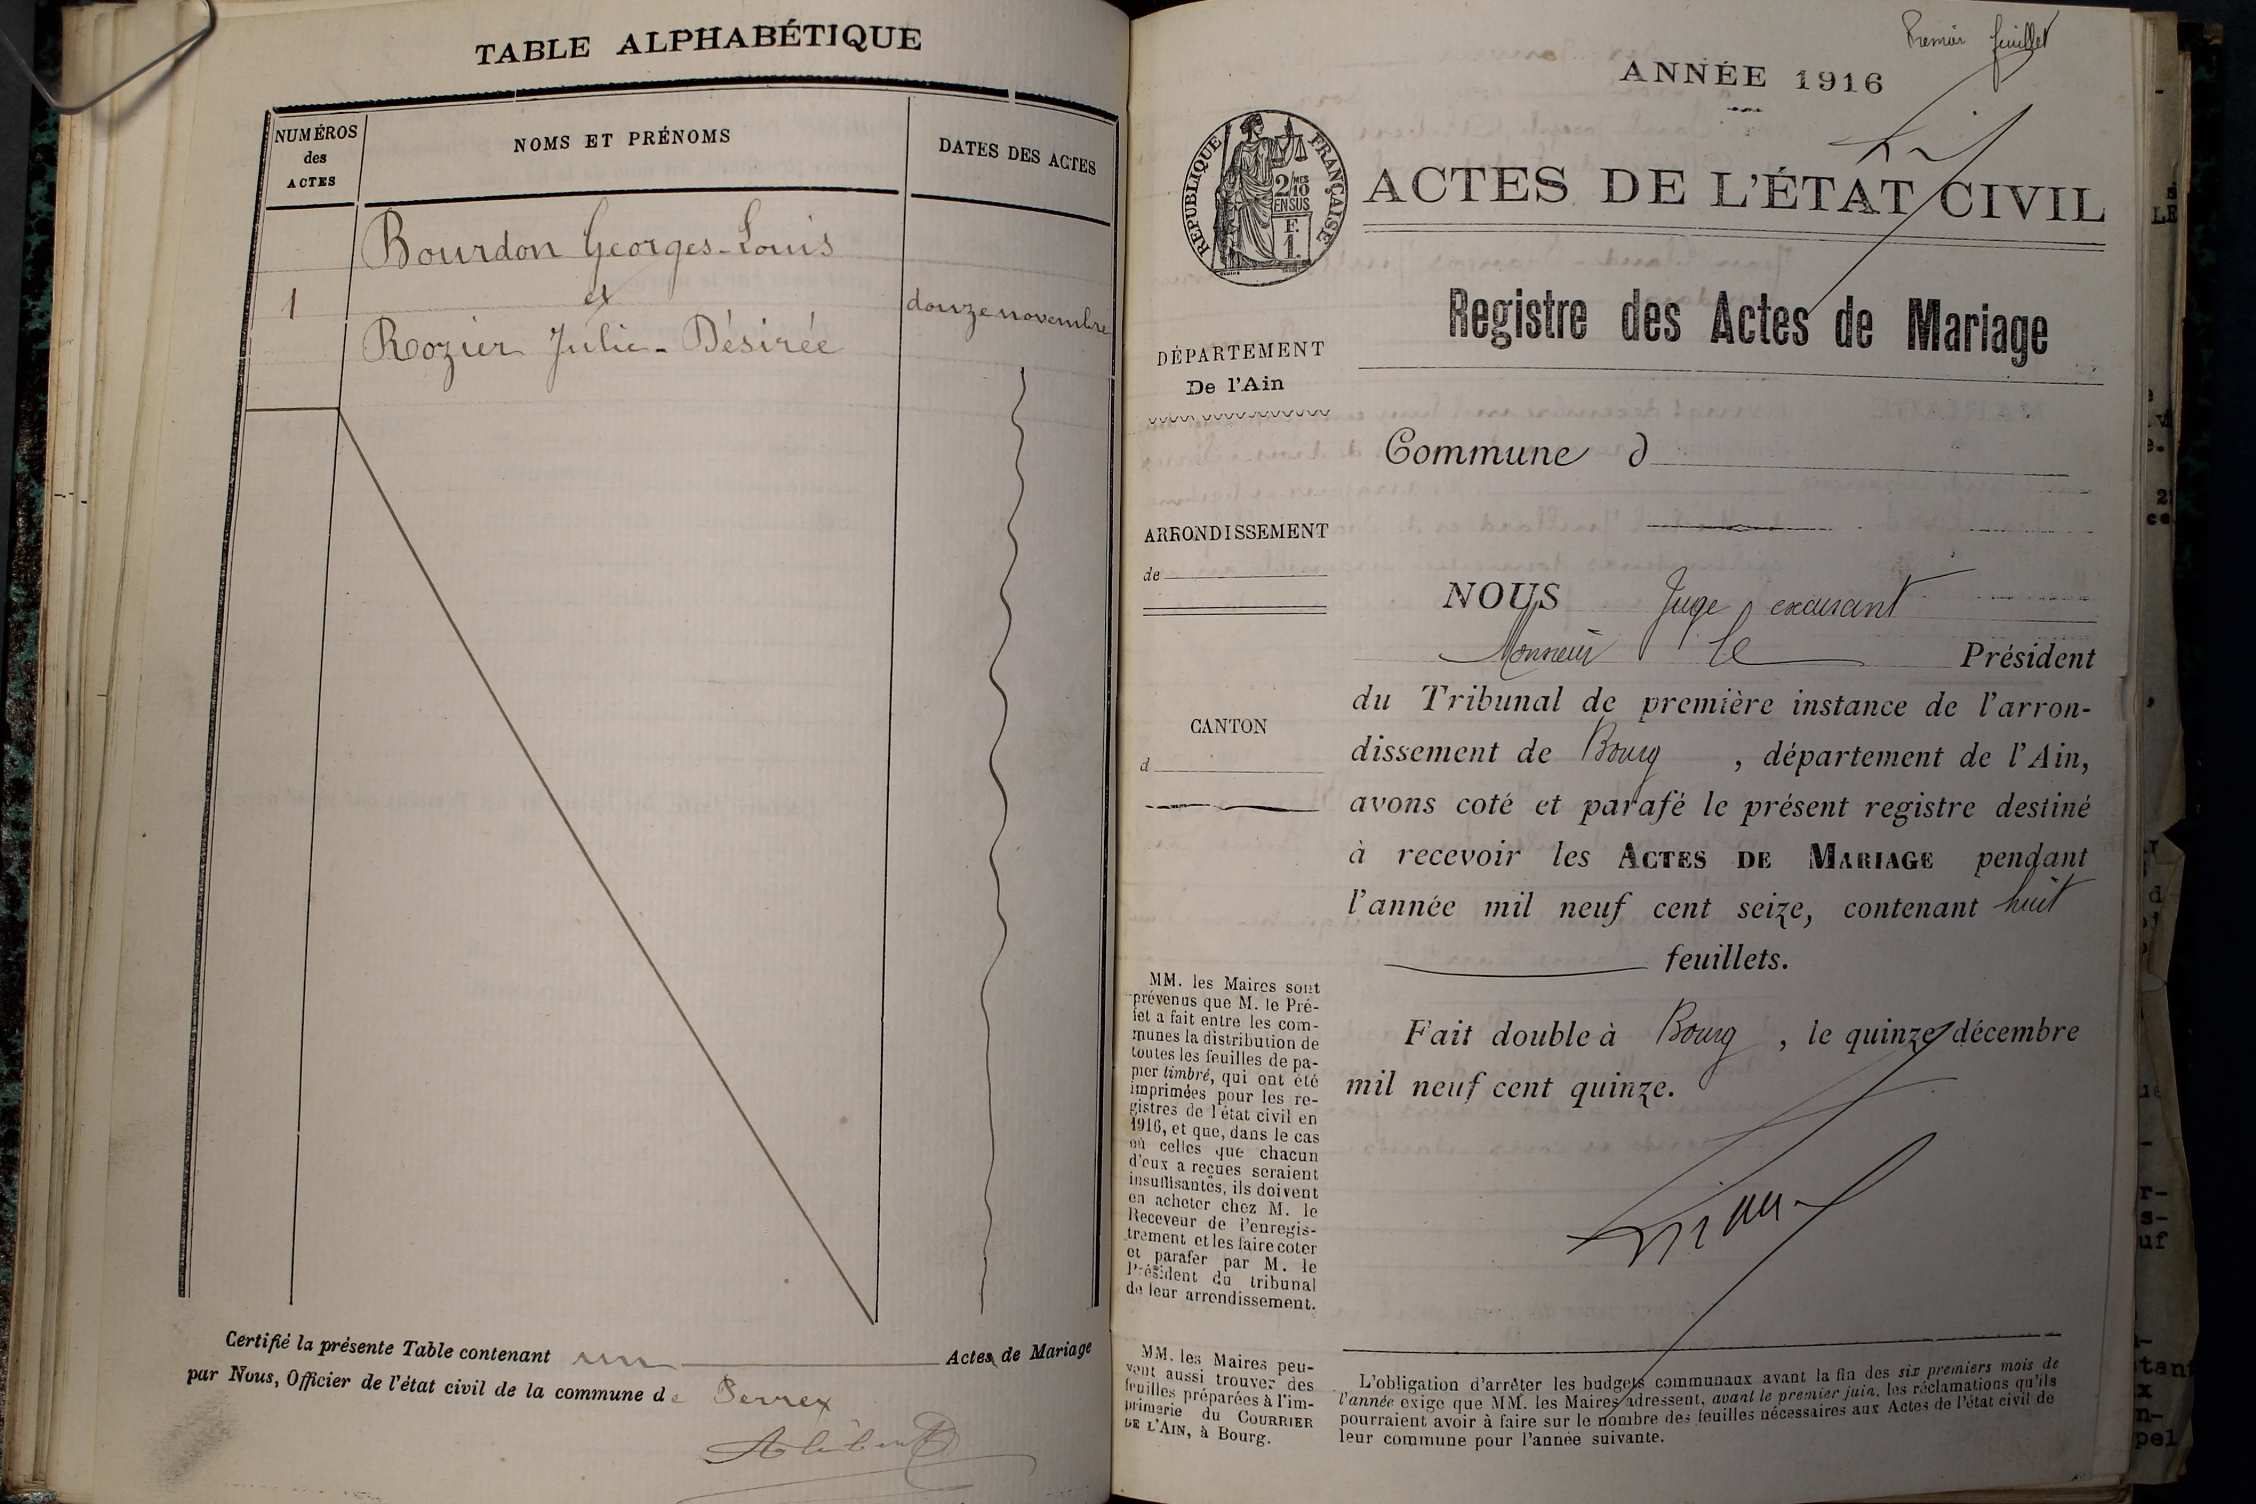 TABLE ALPHABÉTIQUE
NUMÉROS
des
ACTES
NOMS ET PRÉNOMS
DATES DES ACTES
Bourdon Georges-Louis
1
et
douze novembre
Rozier Julie-Désirée
Certifié la présente Table contenant un Actes de Mariage
par Nous, Officier de l'état civil de la commune de Perrex
Premier feuillet
ANNÉE 1916
RÉPUBLIQUE FRANÇAISE
2/10 MES
EN SUS
F.
1.
ACTES DE L'ÉTAT CIVIL
Registre des Actes de Mariage
DÉPARTEMENT
De l'Ain
Commune d
ARRONDISSEMENT
de
CANTON
d
NOUS Juge excusant
Monsieur le Président
du Tribunal de première instance de l'arron-
dissement de Bourg, département de l'Ain,
avons coté et parafé le présent registre destiné
à recevoir les ACTES DE MARIAGE pendant
l'année mil neuf cent seize, contenant huit
feuillets.
Fait double à Bourg, le quinze décembre
mil neuf cent quinze.
MM. les Maires sont
prévenus que M. le Pré-
fet a fait entre les com-
munes la distribution de
toutes les feuilles de pa-
pier timbré, qui ont été
imprimées pour les re-
gistres de l'état civil en
1916, et que, dans le cas
où celles que chacun
d'eux a reçues seraient
insuffisantes, ils doivent
en acheter chez M. le
Receveur de l'enregis-
trement et les faire coter
et parafer par M. le
Président du tribunal
de leur arrondissement.
MM. les Maires peu-
vent aussi trouver des
feuilles préparées à l'im-
primerie du COURRIER
DE L'AIN, à Bourg.
L'obligation d'arrêter les budgets communaux avant la fin des six premiers mois de
l'année exige que MM. les Maires adressent, avant le premier juin, les réclamations qu'ils
pourraient avoir à faire sur le nombre des feuilles nécessaires aux Actes de l'état civil de
leur commune pour l'année suivante.